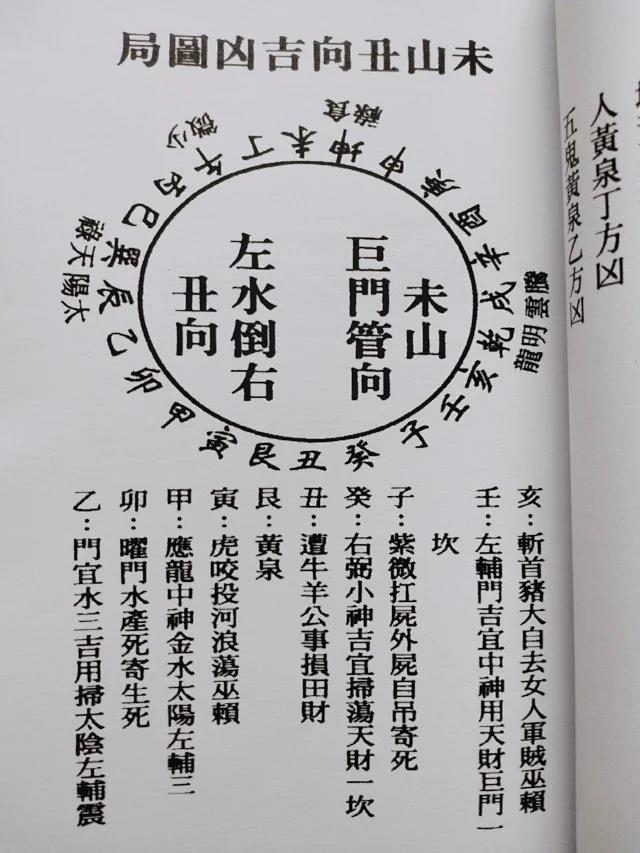 人黃泉丁方凶
五鬼黃泉乙方凶
未山丑向吉凶圖局
祿食
少微
太陽天祿
騰雲明龍
午丁未坤申庚酉辛戌乾亥壬子癸丑艮寅甲卯乙辰巽巳丙
未山
巨門管向
左水倒右
丑向
亥：斬首豬大自去女人軍賊巫賴
壬：左輔門吉宜中神用天財巨門一
坎
子：紫微扛屍外屍自吊寄死
癸：右弼小神吉宜掃蕩天財一坎
丑：遭牛羊公事損田財
艮：黃泉
寅：虎咬投河浪蕩巫賴
甲：應龍中神金水太陽左輔三
卯：曜門水產死寄生死
乙：門宜水三吉用掃太陰左輔震